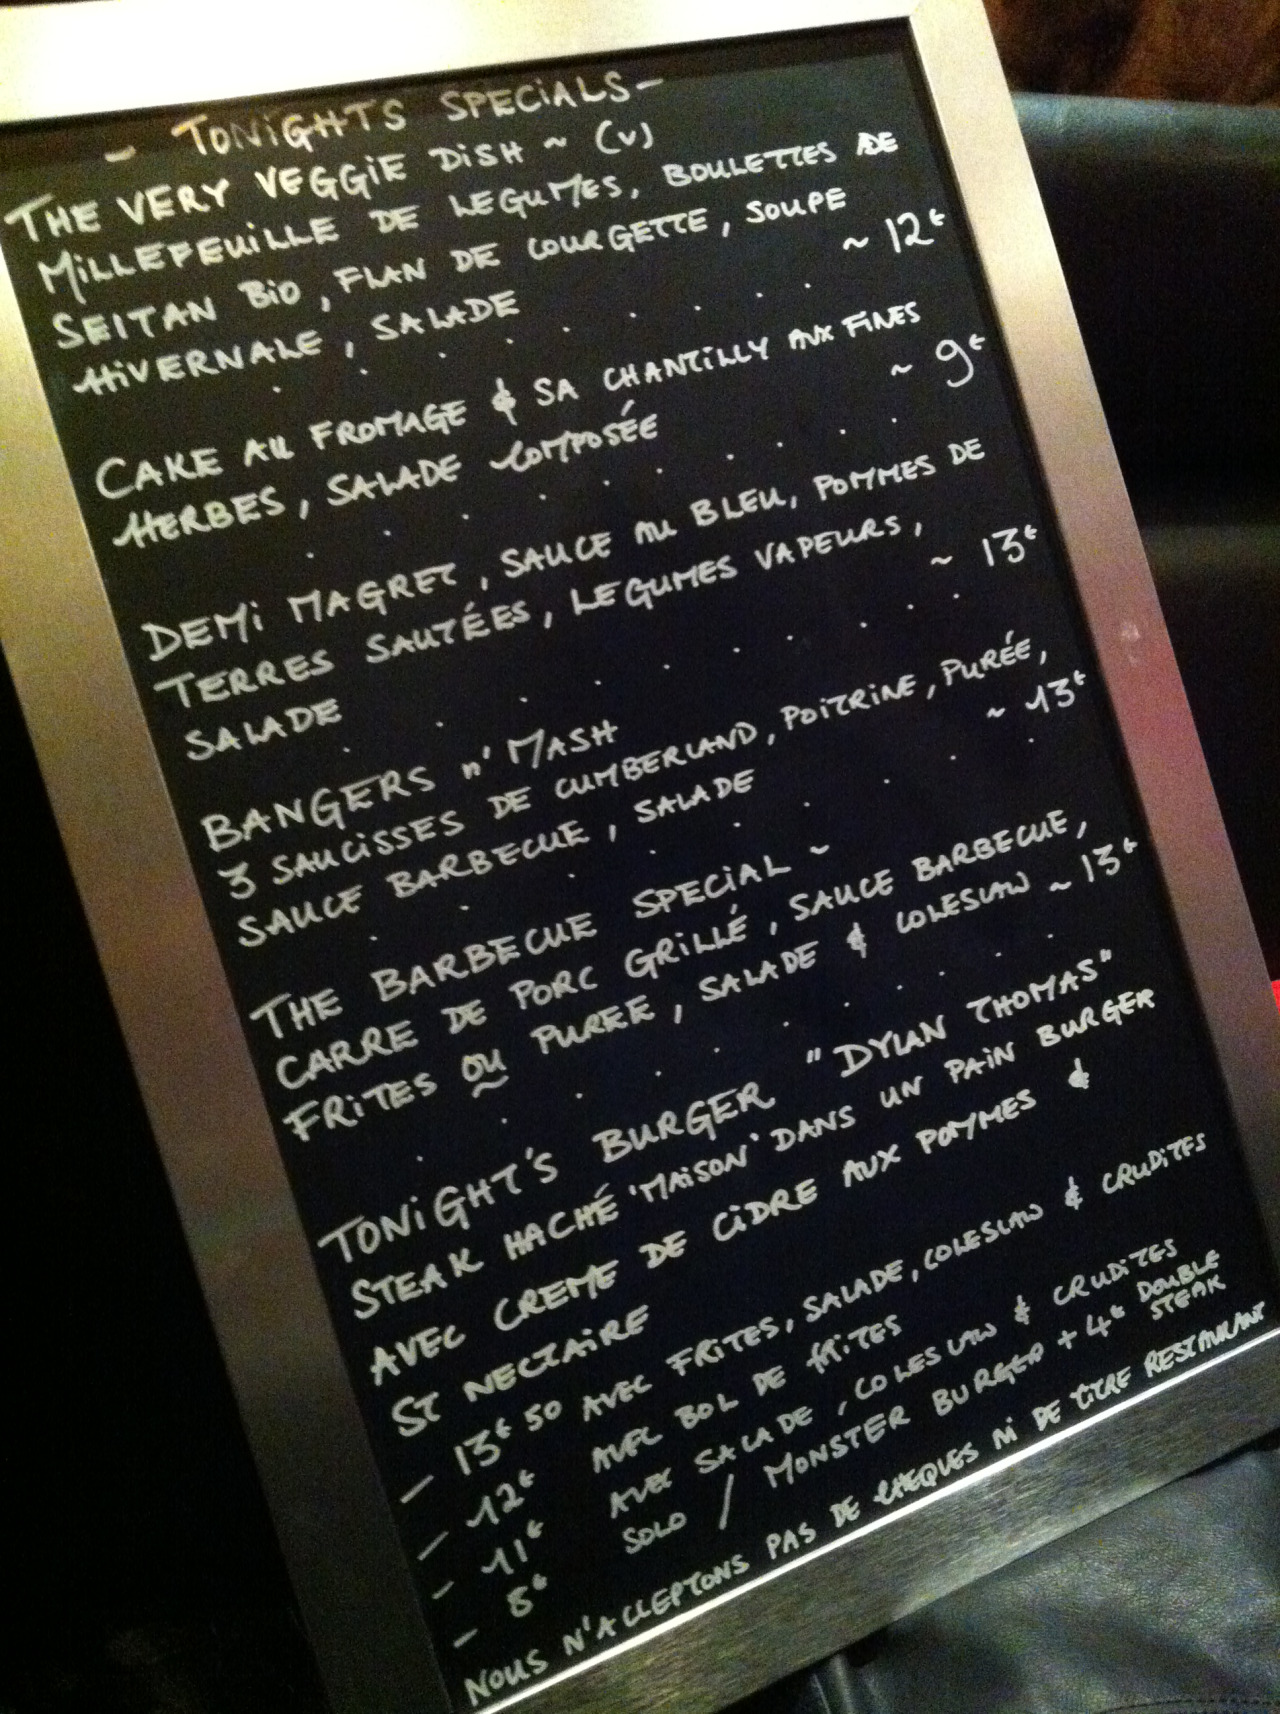 - TONIGHTS SPECIALS -
THE VERY VEGGIE DISH ~ (V)
MILLEFEUILLE DE LEGUMES, BOULETTES DE
SEITAN BIO, FLAN DE COURGETTE, SOUPE
HIVERNALE, SALADE ~ 12€
CAKE AU FROMAGE & SA CHANTILLY AUX FINES
HERBES, SALADE COMPOSÉE ~ 9€
DEMI MAGRET, SAUCE AU BLEU, POMMES DE
TERRES SAUTÉES, LEGUMES VAPEURS,
SALADE ~ 13€
BANGERS n' MASH
3 SAUCISSES DE CUMBERLAND, POITRINE, PURÉE,
SAUCE BARBECUE, SALADE ~ 13€
THE BARBECUE SPECIAL ~
CARRE DE PORC GRILLÉ, SAUCE BARBECUE,
FRITES OU PUREE, SALADE & COLESLAW ~ 13€
TONIGHT'S BURGER "DYLAN THOMAS"
STEAK HACHÉ 'MAISON' DANS UN PAIN BURGER
AVEC CREME DE CIDRE AUX POMMES &
ST NECTAIRE
- 13€50 AVEC FRITES, SALADE, COLESLAW & CRUDITES
- 12€ AVEC BOL DE FRITES
- 11€ AVEC SALADE, COLESLAW & CRUDITES
- 8€ SOLO / MONSTER BURGER + 4€ DOUBLE STEAK
NOUS N'ACCEPTONS PAS DE CHEQUES NI DE TITRE RESTAURANT